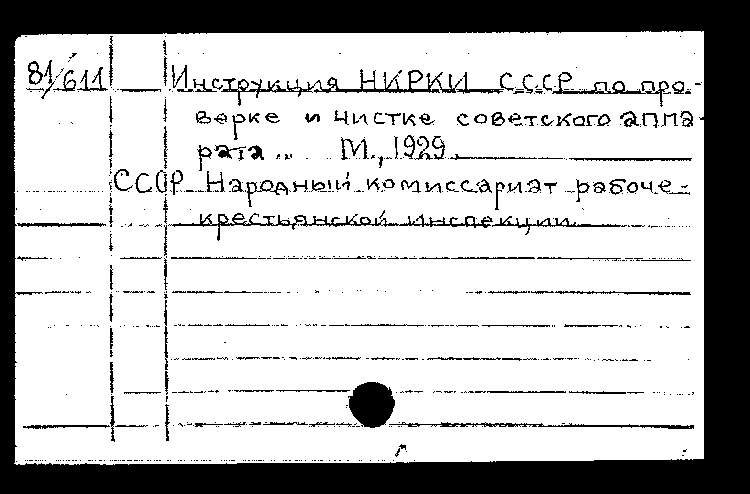 81/611 Инструкция НКРКИ СССР по про-
верке и чистке советского аппа-
рата.. М., 1929.
СССР Народный комиссариат рабоче-
крестьянской инспекции